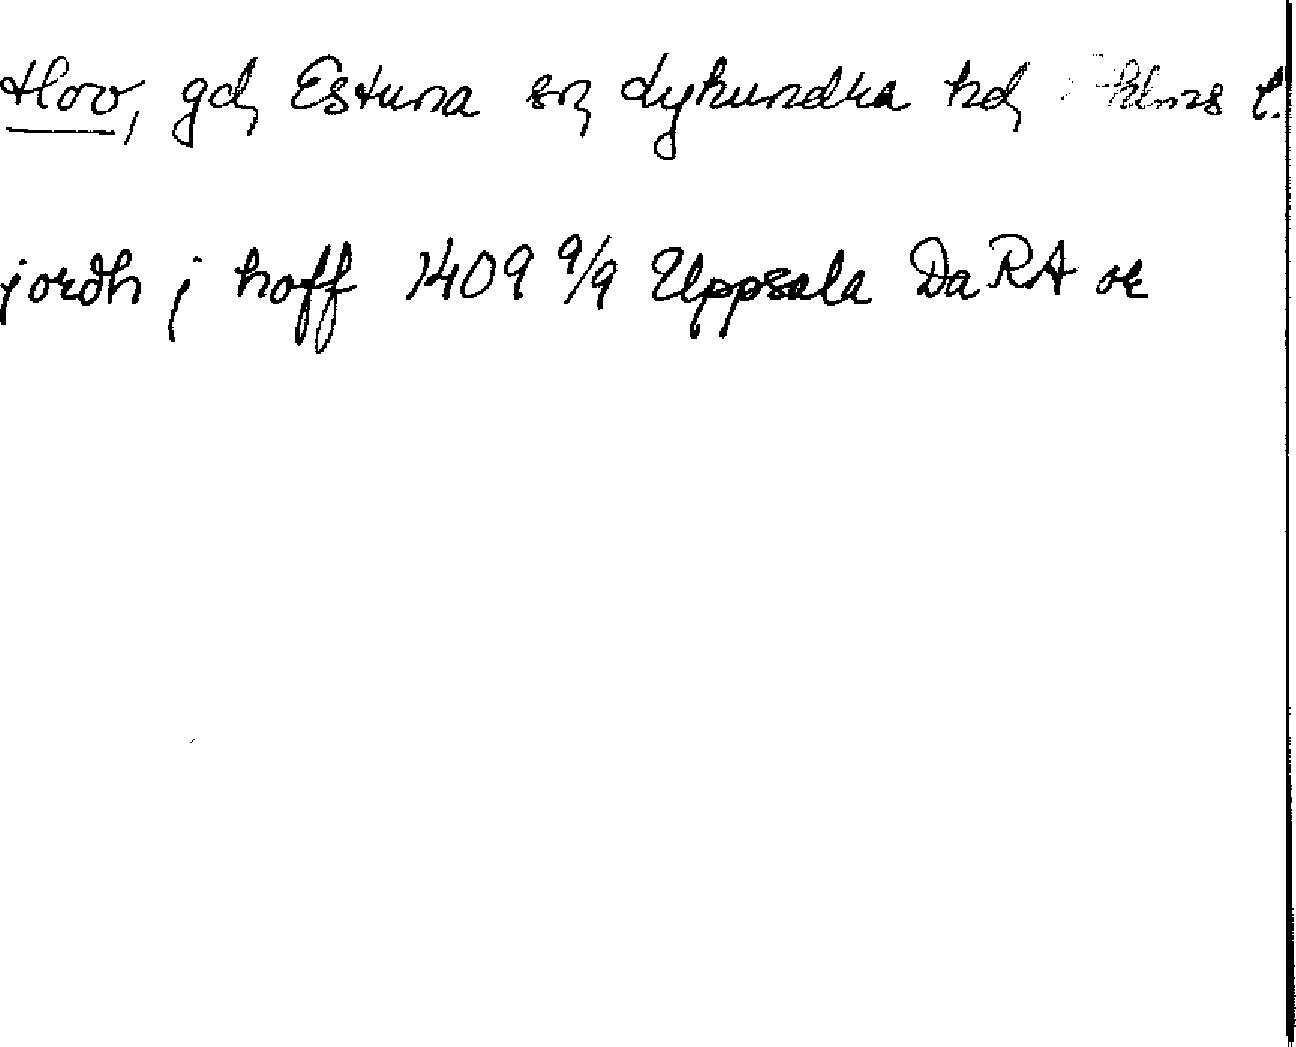 Hov, gd, Estuna sn, Lyhundra hd, Sthlms l.
jordh j hoff 1409 9/9 Uppsala Da RA or